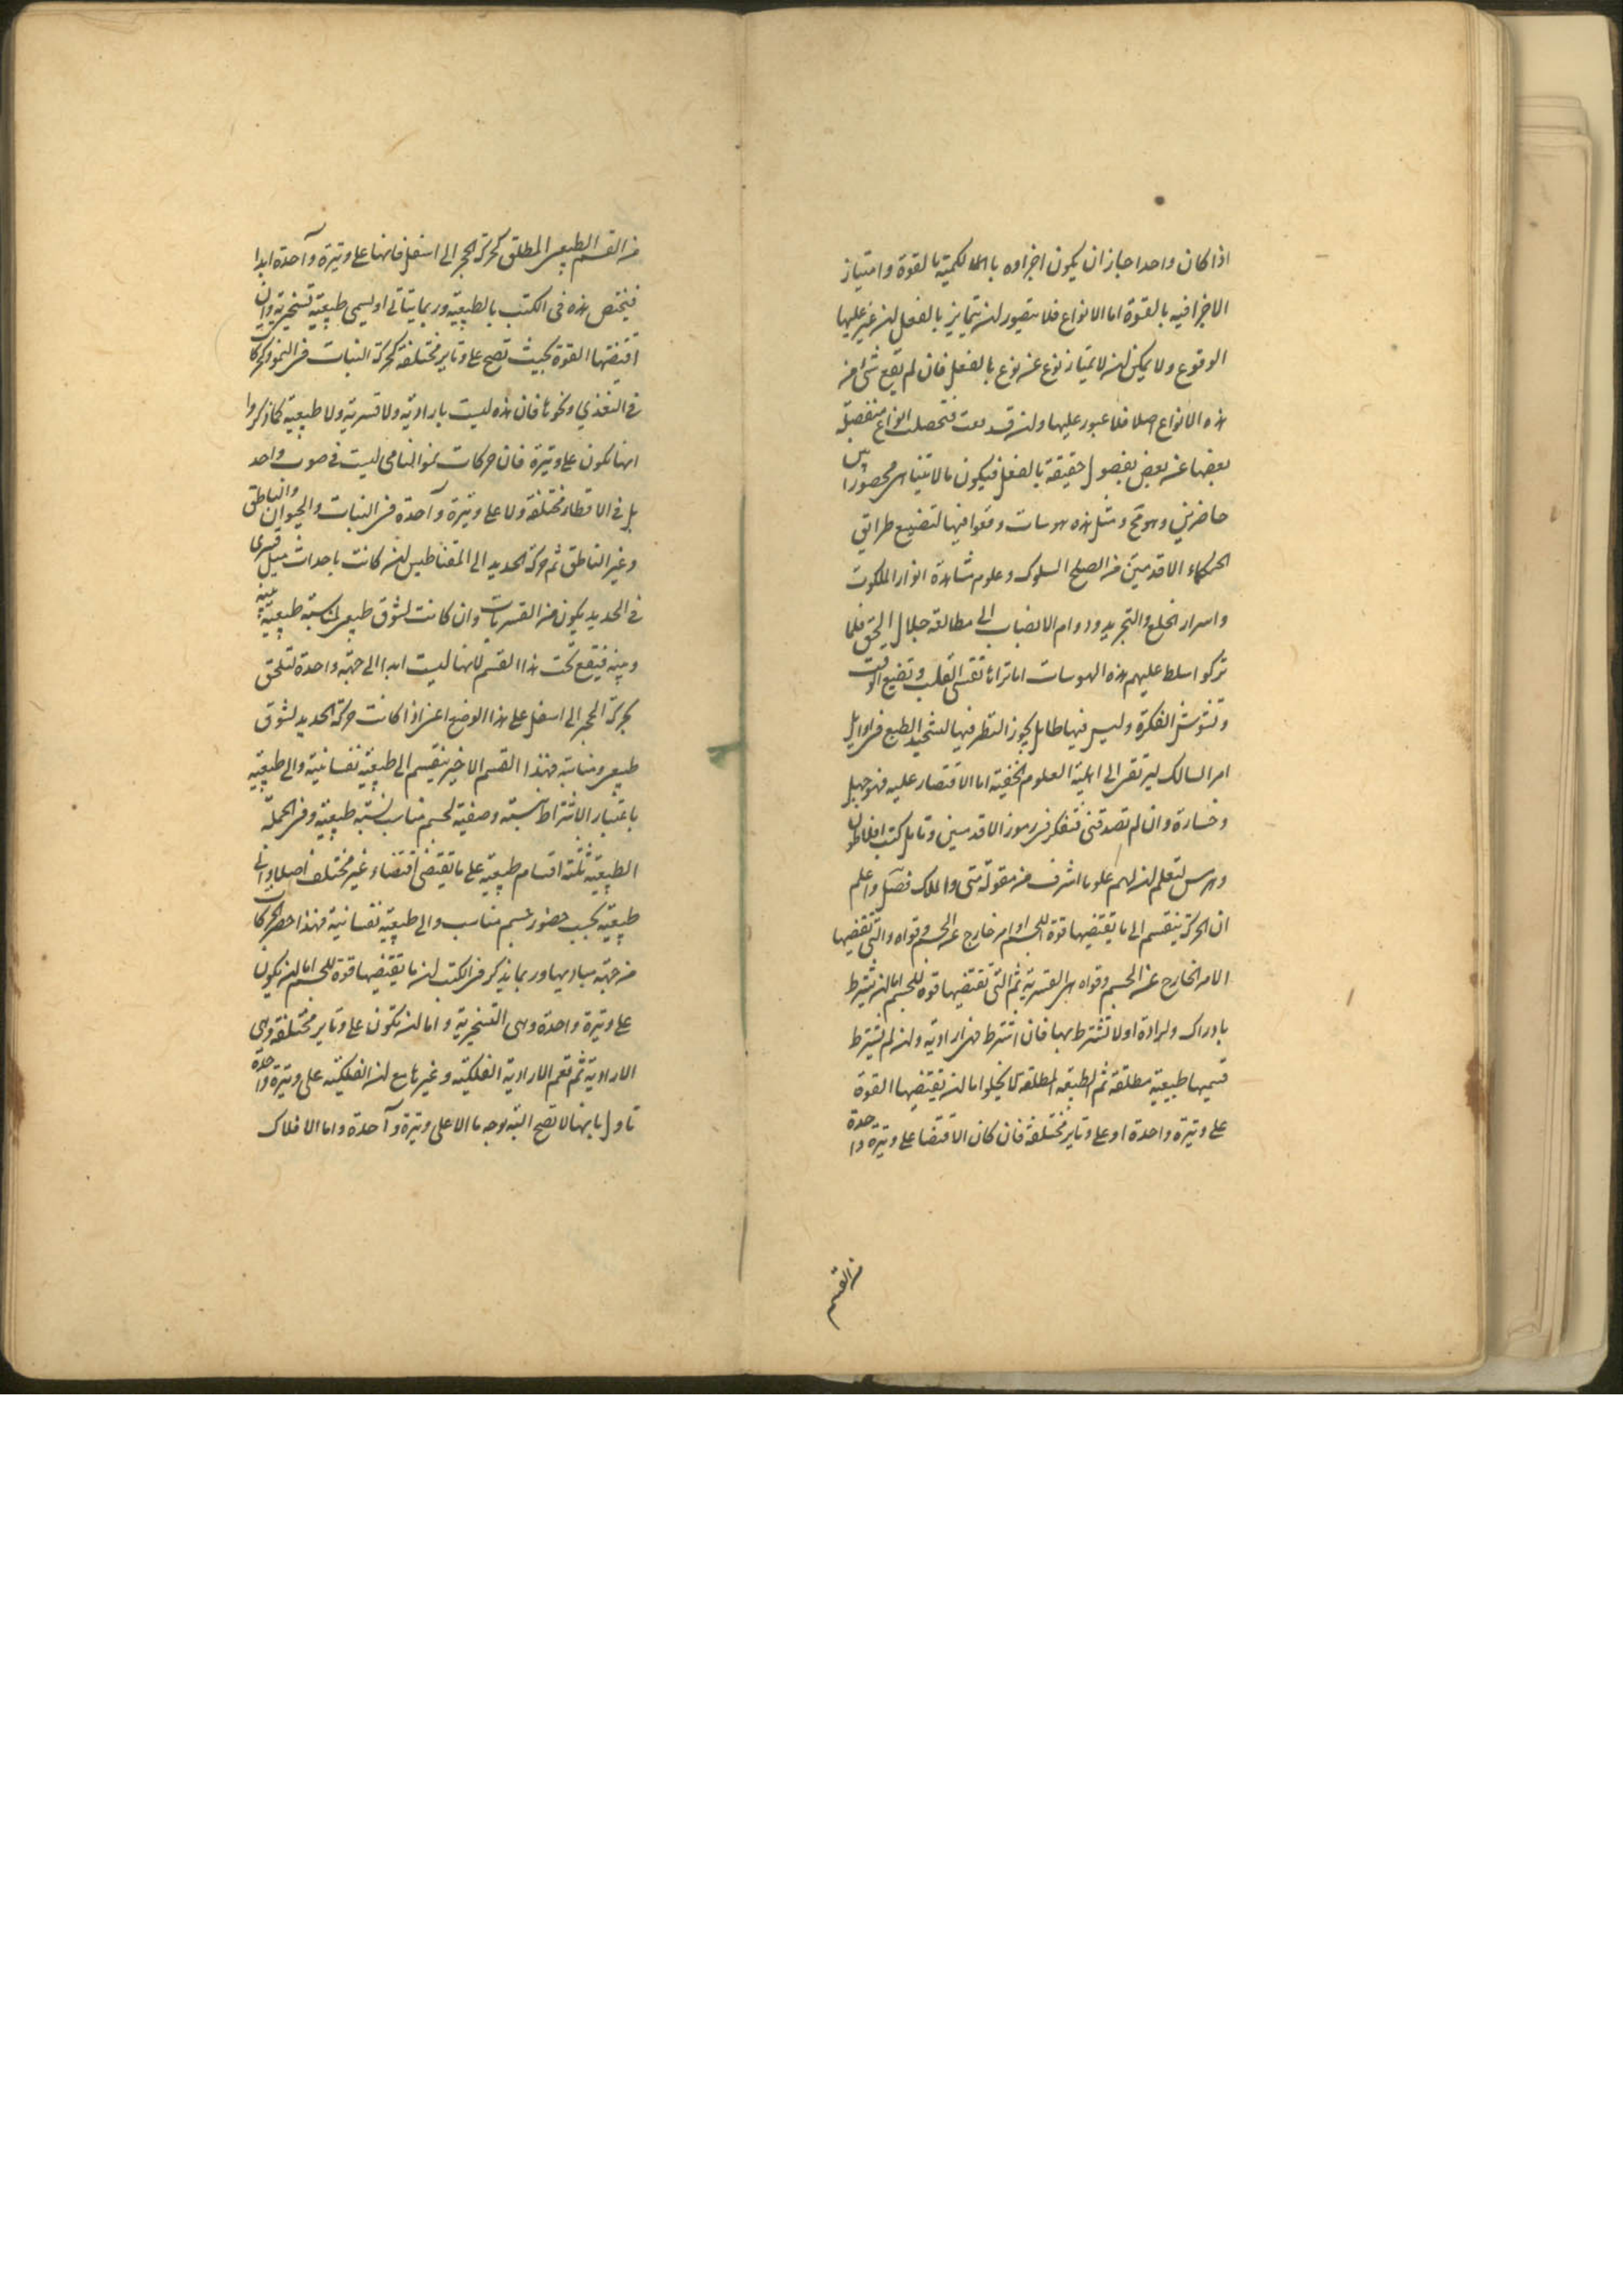 اذا كان واحدا جاز ان يكون اجزاوه باسرها الكمية بالقوة وامتياز
الاجزا فيه بالقوة اما الانواع فلا يتصور ان يتمايز بالفعل ان غير عليها
الوقوع ولا يمكن ان لا يمتاز نوع عن نوع بالفعل فان لم يقع شئ من
هذه الانواع اصلا فلا عبور عليها وان قد وقعت فتحصلت انواع منفصلة
بعضها عن بعض بفصول حقيقة بالفعل فيكون ما لا يتناهى محصورا بين
حاضرين وهو مح ومثل هذه هوسات وقعوا فيها لتضييع طرايق
الحكماء الاقدمين من السلوك وعلوم مشاهدة انوار الملكوت
واسرار الخلع والتجريد ودوام الانصباب الى مطالعة جلال الحق فلما
تركوا سلط عليهم هذه الهوسات اما تراها تقسى القلب وتضيع الوقت
وتشوش الفكرة وليس فيها طايل يجوز النظر فيها لتشحيذ الطبع فى اوايل
امر السالك ليرتقى الى اهلية العلوم الخفية اما الاقتصار عليه فهو جهل
وخسارة وان لم تصدقنى فتفكر فى رموز الاقدمين وتامل كتب افلاطون
وهرمس لتعلم ان لهم علوما اشرف من مقولة متى والملك فصل واعلم
ان الحركة ينقسم الى ما يقتضيها قوة للجسم او امر خارج عن الجسم وقواه والتى تقتضيها
الامر الخارج عن الجسم وقواه هى القسرية ثم التى تقتضيها قوة للجسم اما ان يشترط
بادراك وارادة اولا تشترط بهما فان اشترط فهى ارادية وان لم يشترط
فسميها طبيعية مطلقة ثم الطبيعة المطلقة لا يخلوا اما ان تقتضيها القوة
على وتيرة واحدة او على وتاير مختلفة فان كان الاقتضا على وتيرة واحدة
من القسم
من القسم الطبيعى المطلق كحركة الحجر الى اسفل فانها على وتيرة واحدة ابدا
فيختص هذه فى الكتب بالطبيعية وربما يتاتى او ليسمى طبيعية تسخيرية وان
اقتضتها القوة بحيث تصح على وتاير مختلفة كحركة النبات فى النمو وكحركات
فى التغذي ونحوها فان هذه ليست بارادية ولا قسرية ولا طبيعية كما ذكروا
انها تكون على وتيرة فان حركات نمو النامى ليست فى صوب واحد
بل فى الاقطار مختلفة ولا على وتيرة واحدة فى النبات والحيوان والناطق
وغير الناطق ثم حركة الحديد الى المقناطيس ان كانت باحداث ميل قسرى
فى الحديد يكون من القسريات وان كانت لشوق طبيعى لمناسبة طبيعية بينه
وبينه فيقع تحت هذا القسم لانها ليست ابدا الى جهة واحدة لتلحق
بحركة الحجر الى اسفل على هذا الوضع اعنى اذا كانت حركة الحديد لشوق
طبيعى ومناسبة فهذا القسم الاخير ينقسم الى طبيعية نفسانية والى طبيعية
باعتبار الاشتراط بنسبة وصفية لجسم مناسب لنسبة طبيعية وفى الجملة
الطبيعية ثلثة اقسام طبيعية على ما يقتضى اقتضاء غير مختلف اصلا والى
طبيعية بحسب حضور جسم مناسب والى طبيعية نفسانية فهذا حصر الحركات
من جهة مباديها وربما يذكر فى الكتب ان ما يقتضيها قوة للجسم اما ان يكون
على وتيرة واحدة وهى التسخيرية واما ان تكون على وتاير مختلفة وهى
الارادية ثم تعم الارادية الفلكية وغيرها مع ان الفلكية على وتيرة واحدة
تاول بانها لا تصح البتة بوجه ما الا على وتيرة واحدة واما الافلاك